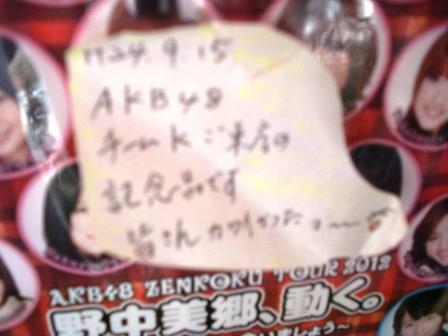 H24.9.15
AKB48
チームKご来店の
記念品です
皆さんカワイかったョ〜
AKB48 ZENKOKU TOUR 2012
野中美郷、動く。